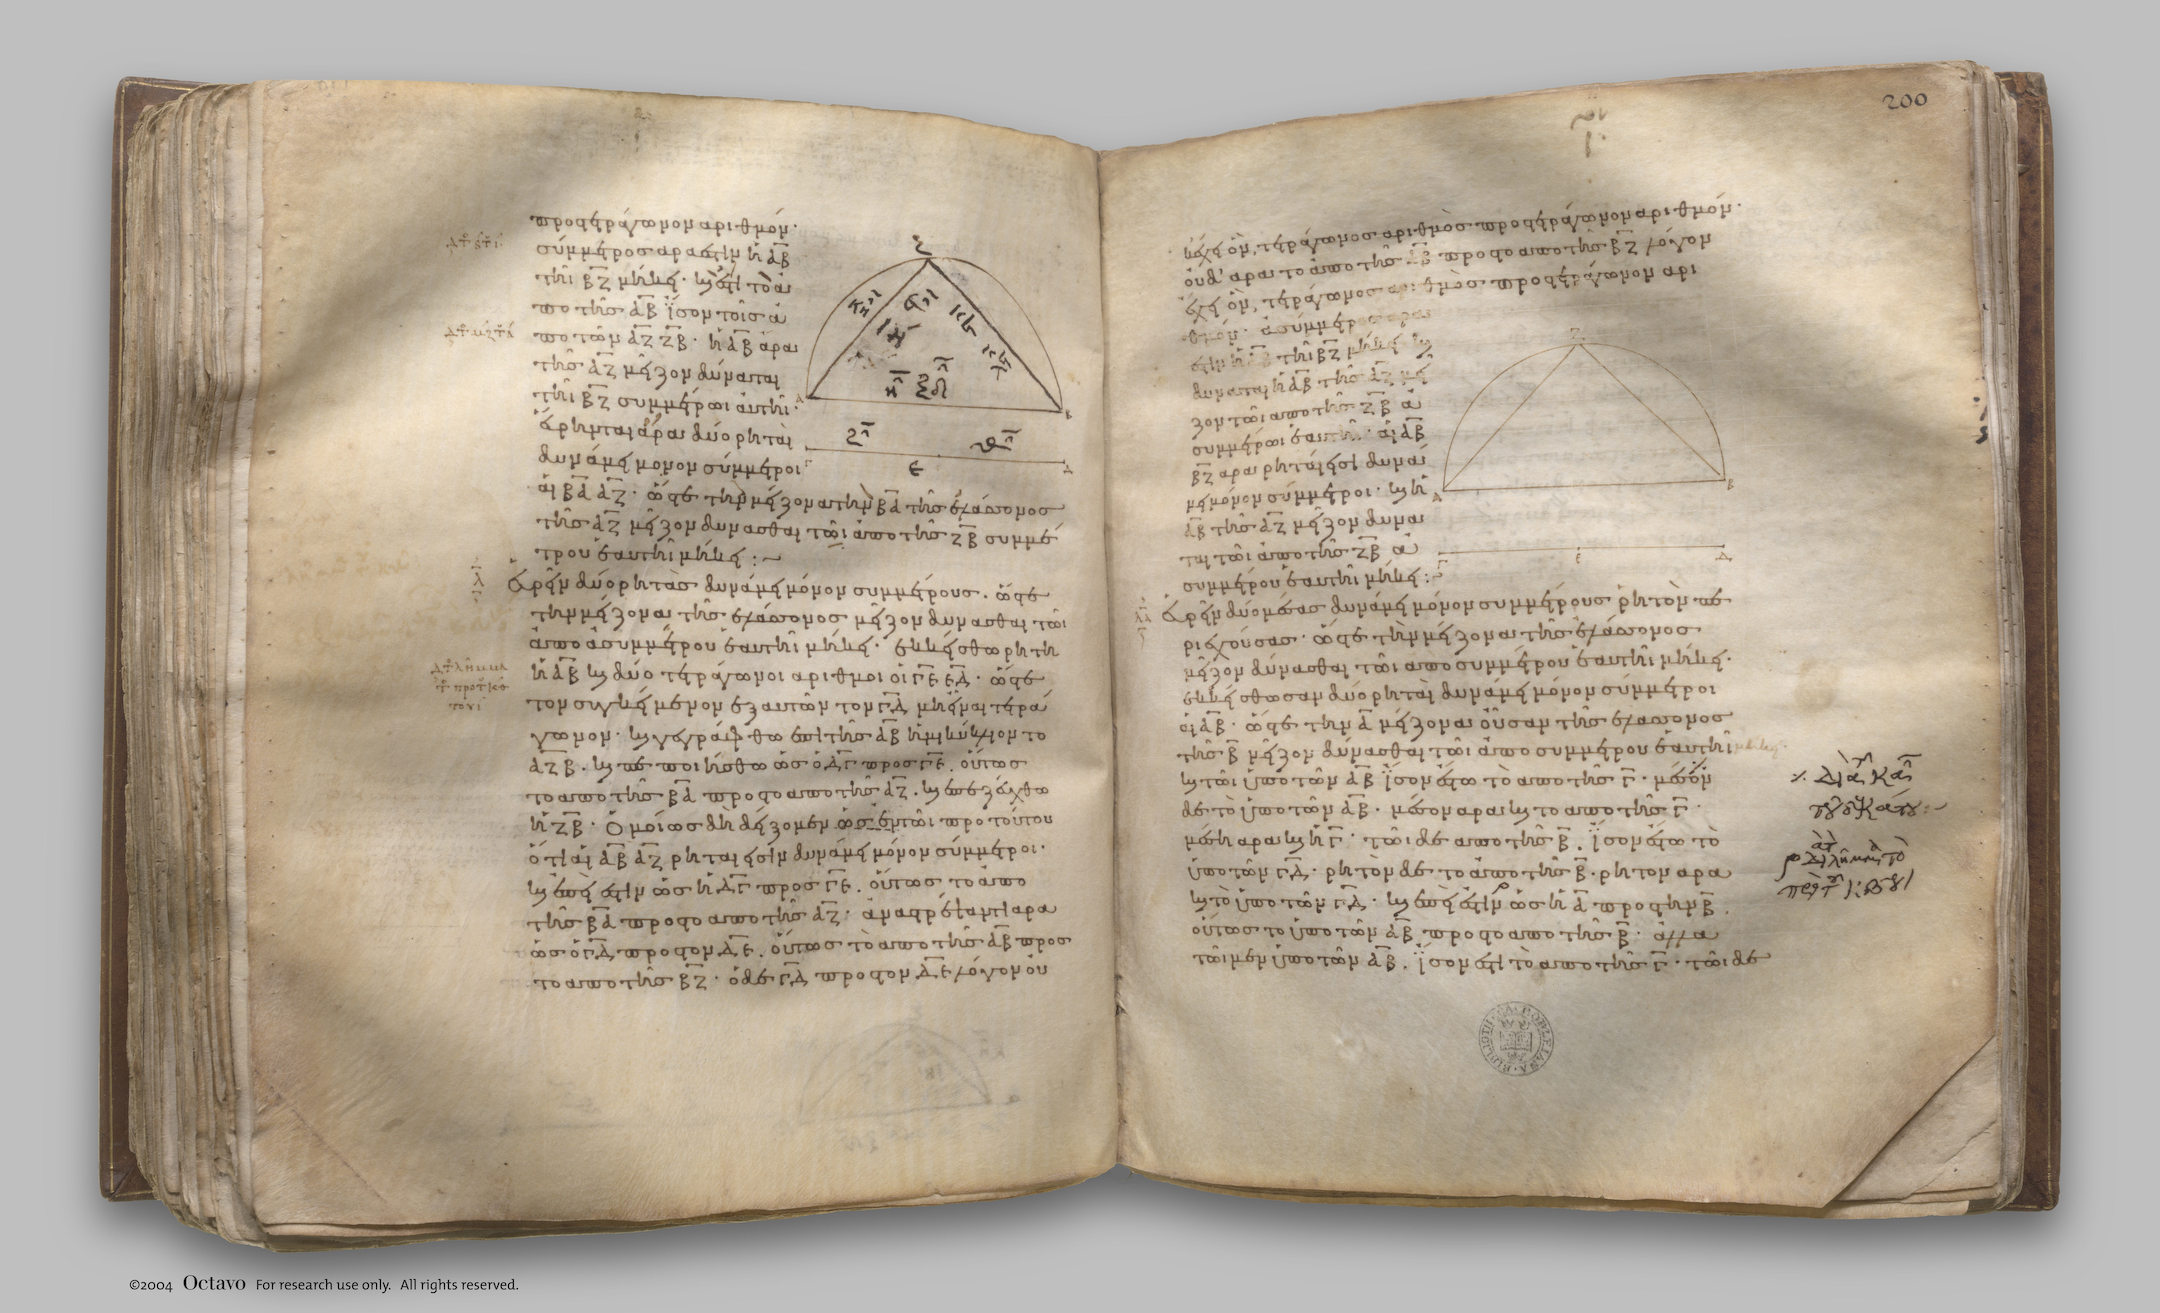 προς τετράγωνον αριθμόν·
σύμμετρος αρα εστὶν ἡ ΑΒ
τῆι ΒΖ μήκει· καὶ ἐστι τὸ ἀ
πο τῆς ΑΒ ἴσον τοῖς ἀ
πο τῶν ΑΖ ΖΒ· ἡ ΑΒ ἄρα
τῆς ΑΖ μεῖζον δύναται
τῆι ΒΖ συμμέτρωι ἑαυτῆι·
ἕυρηνται ἄρα δύο ρηταὶ
δυνάμει μόνον σύμμετροι
αἱ ΒΑ ΑΖ· ὥστε τὴν μείζονα τὴν ΒΑ τῆς ἐλάσσονος
τῆς ΑΖ μεῖζον δυνασθαι τῶι ἀπο τῆς ΖΒ συμμέ
τρου ἑαυτῆι μήκει:~
λ
Ἑυρεῖν δύο ρητὰς δυνάμει μόνον συμμέτρους. ὥστε
την μείζονα τῆς ἐλάσσονος μεῖζον δυνασθαι τῶι
ἀπο ἀσυμμέτρου ἑαυτῆι μήκει· ἐκκείσθω ρητη
ἡ ΑΒ καὶ δύο τετράγωνοι αριθμοι οἱ ΓΕ ΕΔ· ὥστε
τον συγκείμενον εξ αυτῶν τον ΓΔ μὴ εἶναι τετρά
γωνον· καὶ γεγράφθω επι τῆς ΑΒ ἡμικύκλιον το
ΑΖΒ. καὶ πεποιήσθω ὡς ὁ ΔΓ προς ΓΕ. οὕτως
το απο τῆς ΒΑ προς το απο τῆς ΑΖ. καὶ ἐπεζεύχθω
ἡ ΖΒ· Ὁμοίως δὴ δείξομεν ὡς ἐν τῶι προ τούτου
ὅτι αἱ ΑΒ ΑΖ ρηται εἰσὶν δυνάμει μόνον σύμμετροι·
καὶ ἐπεὶ ἐστιν ὡς ἡ ΔΓ προς ΓΕ. οὕτως το ἀπο
τῆς ΒΑ προς το απο τῆς ΑΖ· ἀναστρέψαντι αρα
ὡς ὁ ΓΔ προς τον ΔΕ. οὕτως τὸ απο τῆς ΑΒ προς
το απο τῆς ΒΖ· ὁ δὲ ΓΔ προς τον ΔΕ λόγον οὐ
200
κ ἔχει ὃν τετράγωνος αριθμὸς προς τετράγωνον αριθμόν·
ουδ' αρα το ἀπο τῆς ΑΒ προς το απο τῆς ΒΖ λόγον
ἔχει ὃν τετράγωνος αριθμὸς προς τετράγωνον αρι
θμόν· ἀσύμμετρος αρα
ἐστιν ἡ ΑΒ τῆι ΒΖ μήκει καὶ
δυναται ἡ ΑΒ τῆς ΑΖ μεῖ
ζον τῶι απο τῆς ΖΒ ἀ
συμμέτρωι ἑαυτῆι· αἱ ΑΒ
ΒΖ αρα ρηταί εἰσι δυνά
μει μόνον σύμμετροι· καὶ ἡ
ΑΒ τῆς ΑΖ μεῖζον δύνα
ται τῶι ἀπο τῆς ΖΒ ἀ
συμμέτρου ἑαυτῆι μήκει:
λα
Ἑυρεῖν δύο μέσας δυνάμει μόνον συμμέτρους ρητὸν πε
ριεχούσας· ὥστε τὴν μείζονα τῆς ἐλάσσονος
μεῖζον δύνασθαι τῶι απο συμμέτρου ἑαυτῆι μήκει·
εκκείσθωσαν δύο ρηταὶ δυνάμει μόνον σύμμετροι
αἱ ΑΒ· ὥστε την Α μείζονα οὖσαν τῆς ἐλάσσονος
τῆς Β μεῖζον δύνασθαι τῶι ἀπο συμμέτρου ἑαυτῆι μήκει
καὶ τῶι ὑπὸ τῶν ΑΒ ἴσον ἔστω τὸ απο τῆς Γ· μέσον
δε τὸ ὑπο τῶν ΑΒ· μέσον αρα καὶ το απο τῆς Γ·
μέση αρα καὶ ἡ Γ· τῶι δε απο τῆς Β. ἴσον ἔστω τὸ
ὑπο τῶν ΓΔ. ρητὸν δε το ἀπο τῆς Β. ρητον αρα
καὶ τὸ ὑπο τῶν ΓΔ· καὶ ἐπεὶ ἐστιν ὡς ἡ Α προς την Β.
οὕτως το ὑπο τῶν ΑΒ προς το απο τῆς Β· ἀλλα
τῶι μεν ὑπο τῶν ΑΒ. ἴσον ἐστι τὸ απο τῆς Γ· τῶι δε
©2004 Octavo For research use only. All rights reserved.